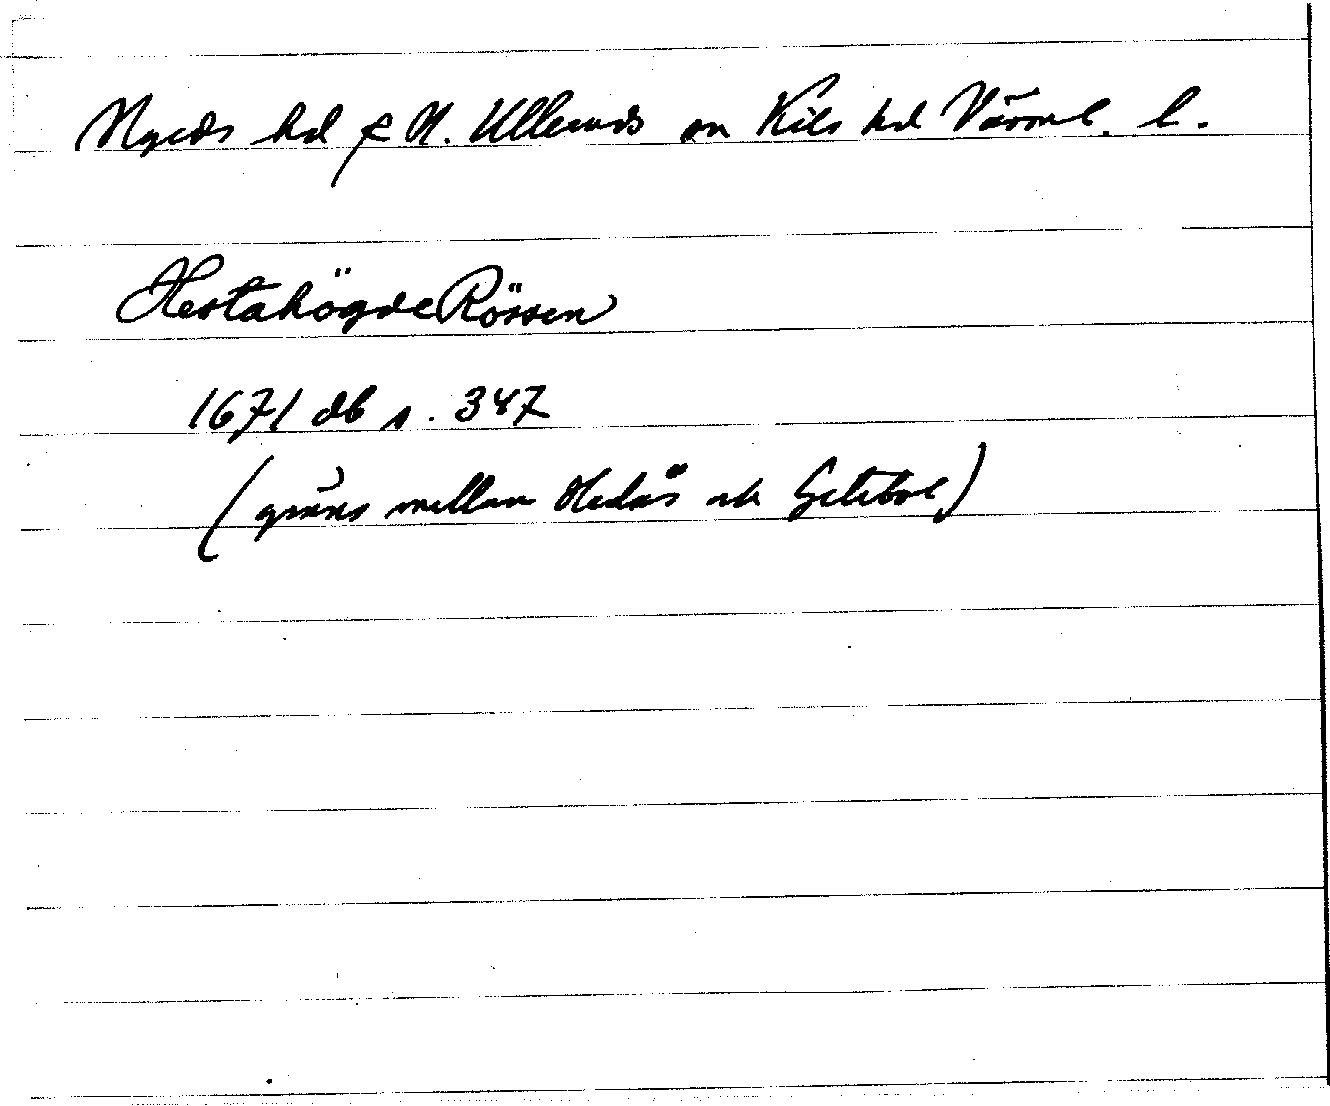 Nyeds hd f N. Ulleruds sn Kils hd Värml. l.
HestahögdeRössen
1671 db s. 347
(gräns mellan Hedås och Getebol)